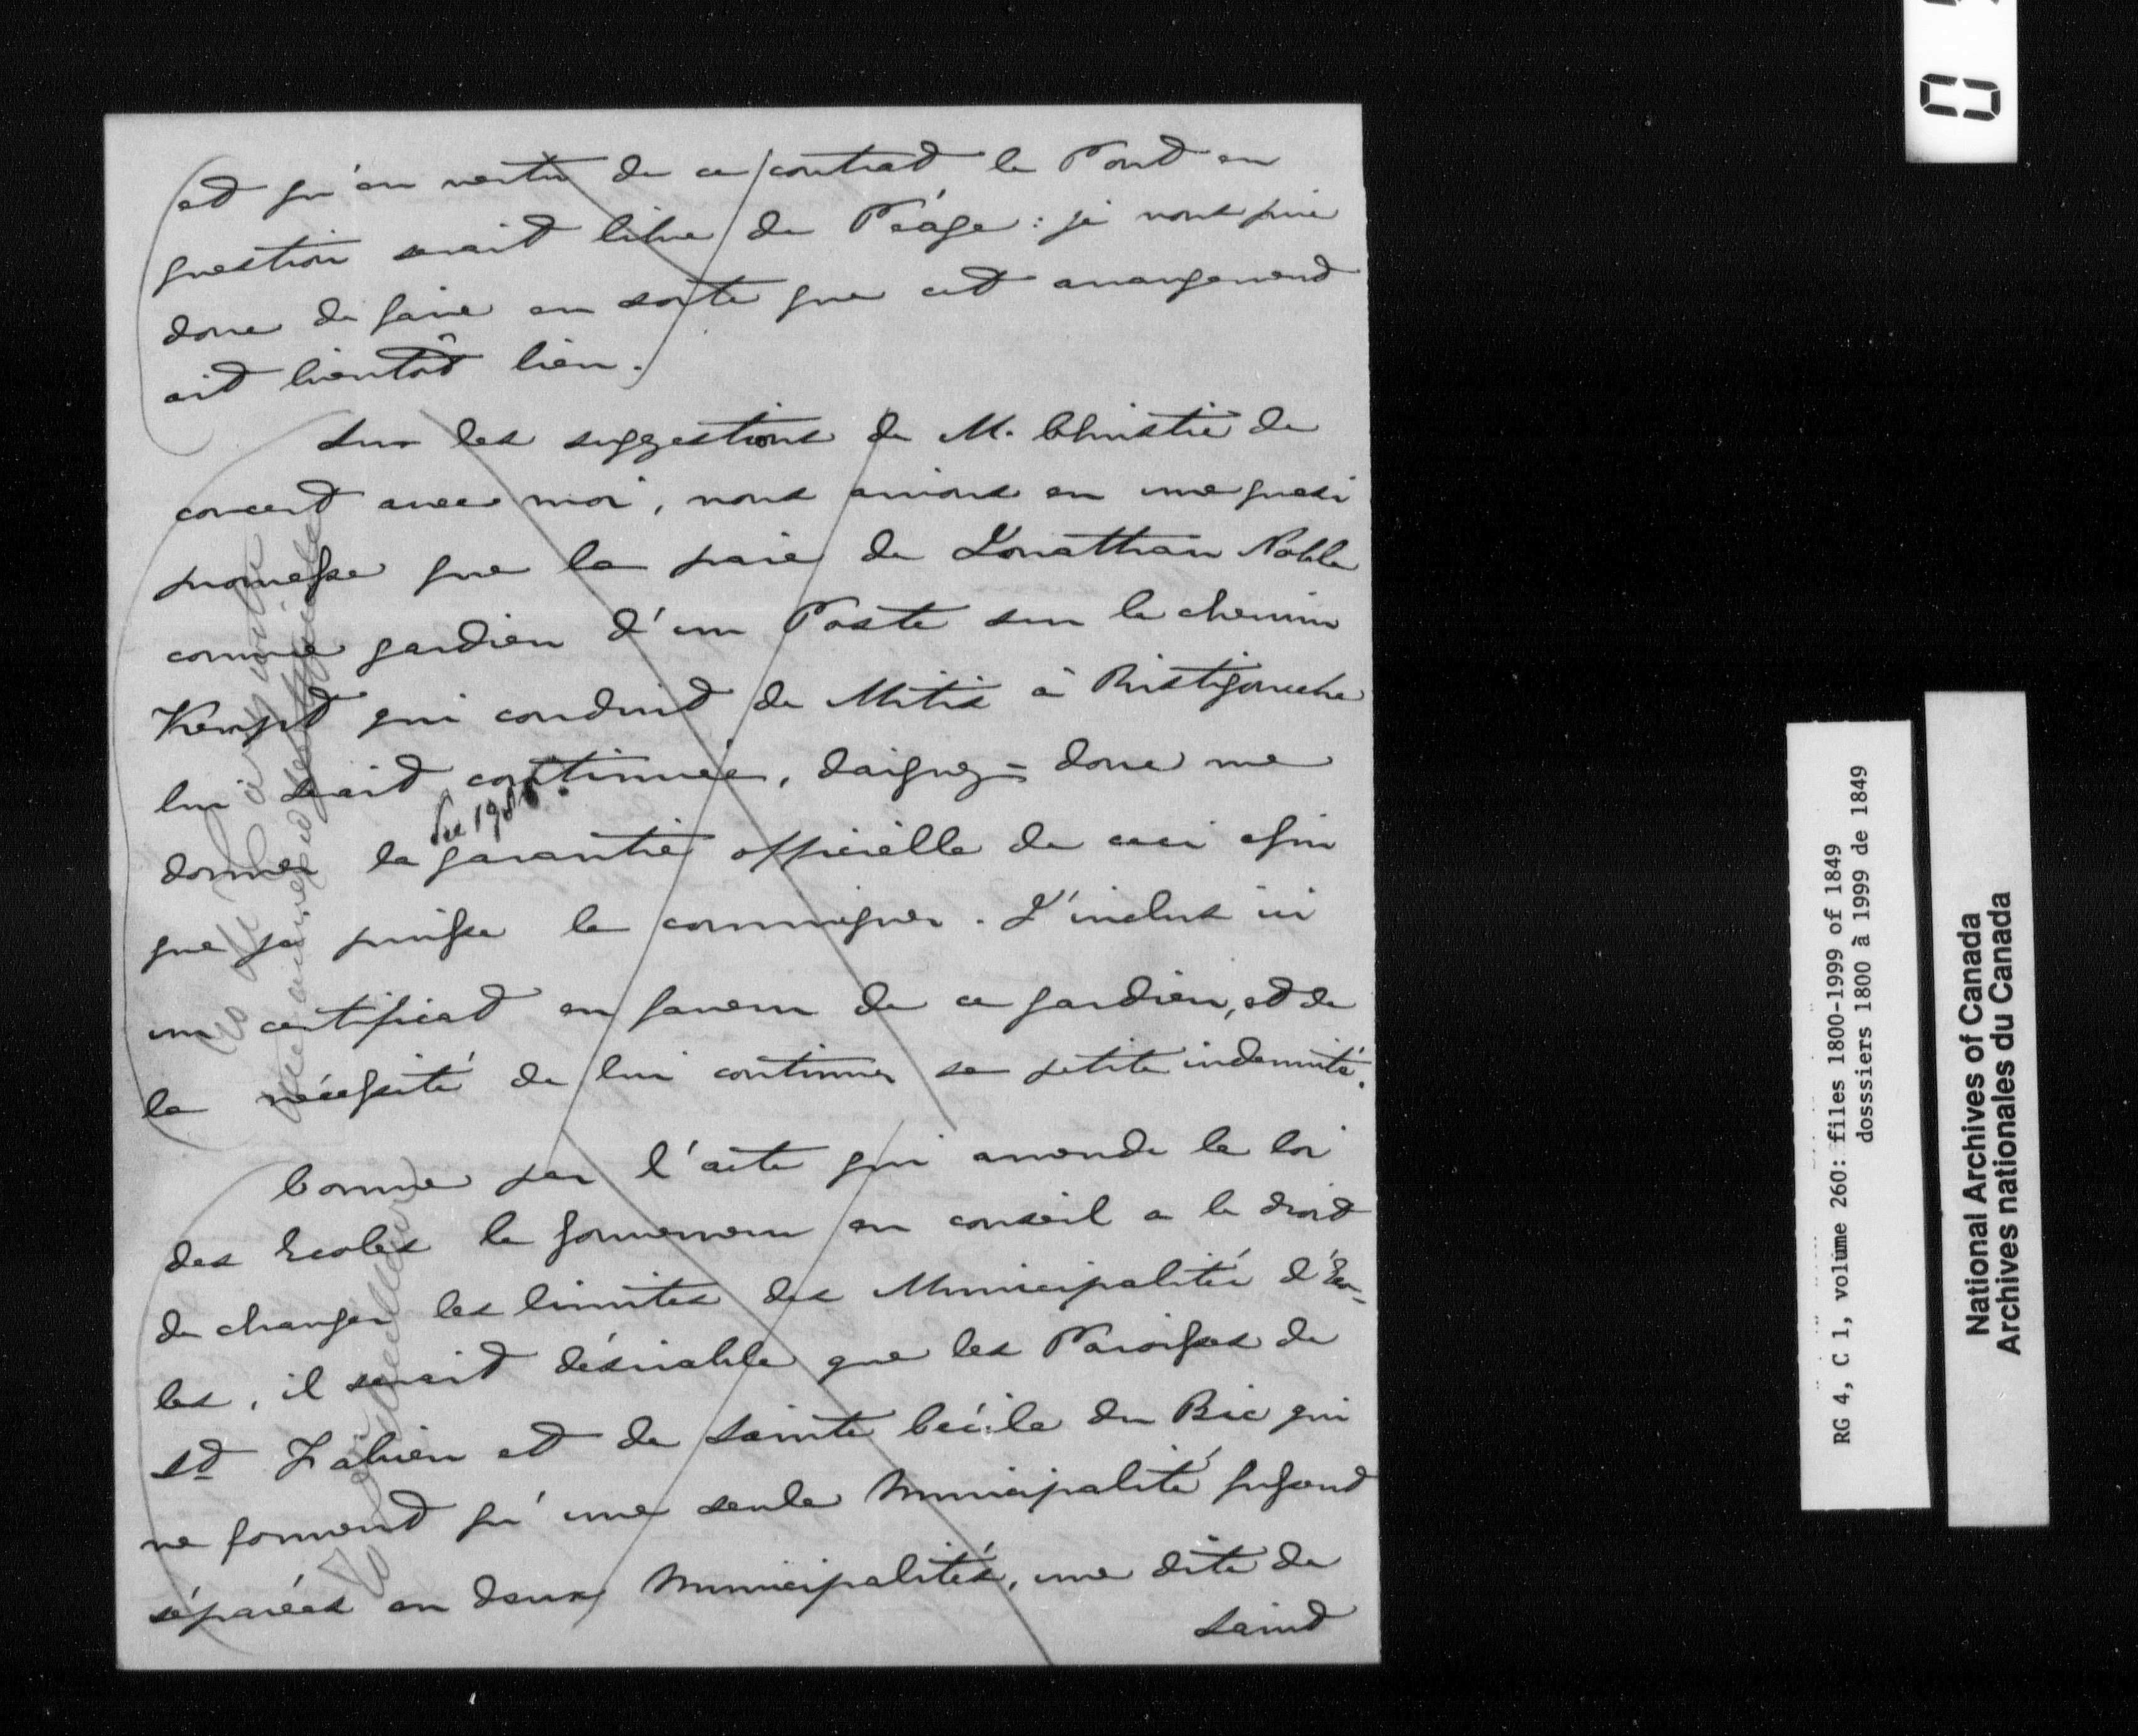 et qu'en vertu de ce contrat le Pont en
question serait libre de Péage : je vous prie
donc de faire en sorte que cet arrangement
ait bientôt lieu.
Sur les suggestions de M. Christie de
concert avec moi, nous avions eu une quasi
promesse que la paie de Jonathan Noble
comme gardien d'un Poste sur le chemin
Kempt qui conduit de Mitis à Ristigouche
lui serait continuée, daignez = donc me
See 1981.
donner la garantie officielle de ceci afin
que je puisse le communiquer. J'inclus ici
un certificat en faveur de ce gardien, et de
la nécessité de lui continuer sa petite indemnité.
Comme par l'acte qui amende la loi
des Ecoles le gouverneur en conseil a le droit
de changer les limites des Municipalités d'Eco-
les, il serait désirable que les Paroisses de
St Fabien et de Sainte Cécile du Bic qui
ne forment qu'une seule Municipalité fussent
séparées en deux Municipalités, une dite de
Saint
RG 4, C 1, volume 260: files 1800-1999 of 1849
dosssiers 1800 à 1999 de 1849
National Archives of Canada
Archives nationales du Canada